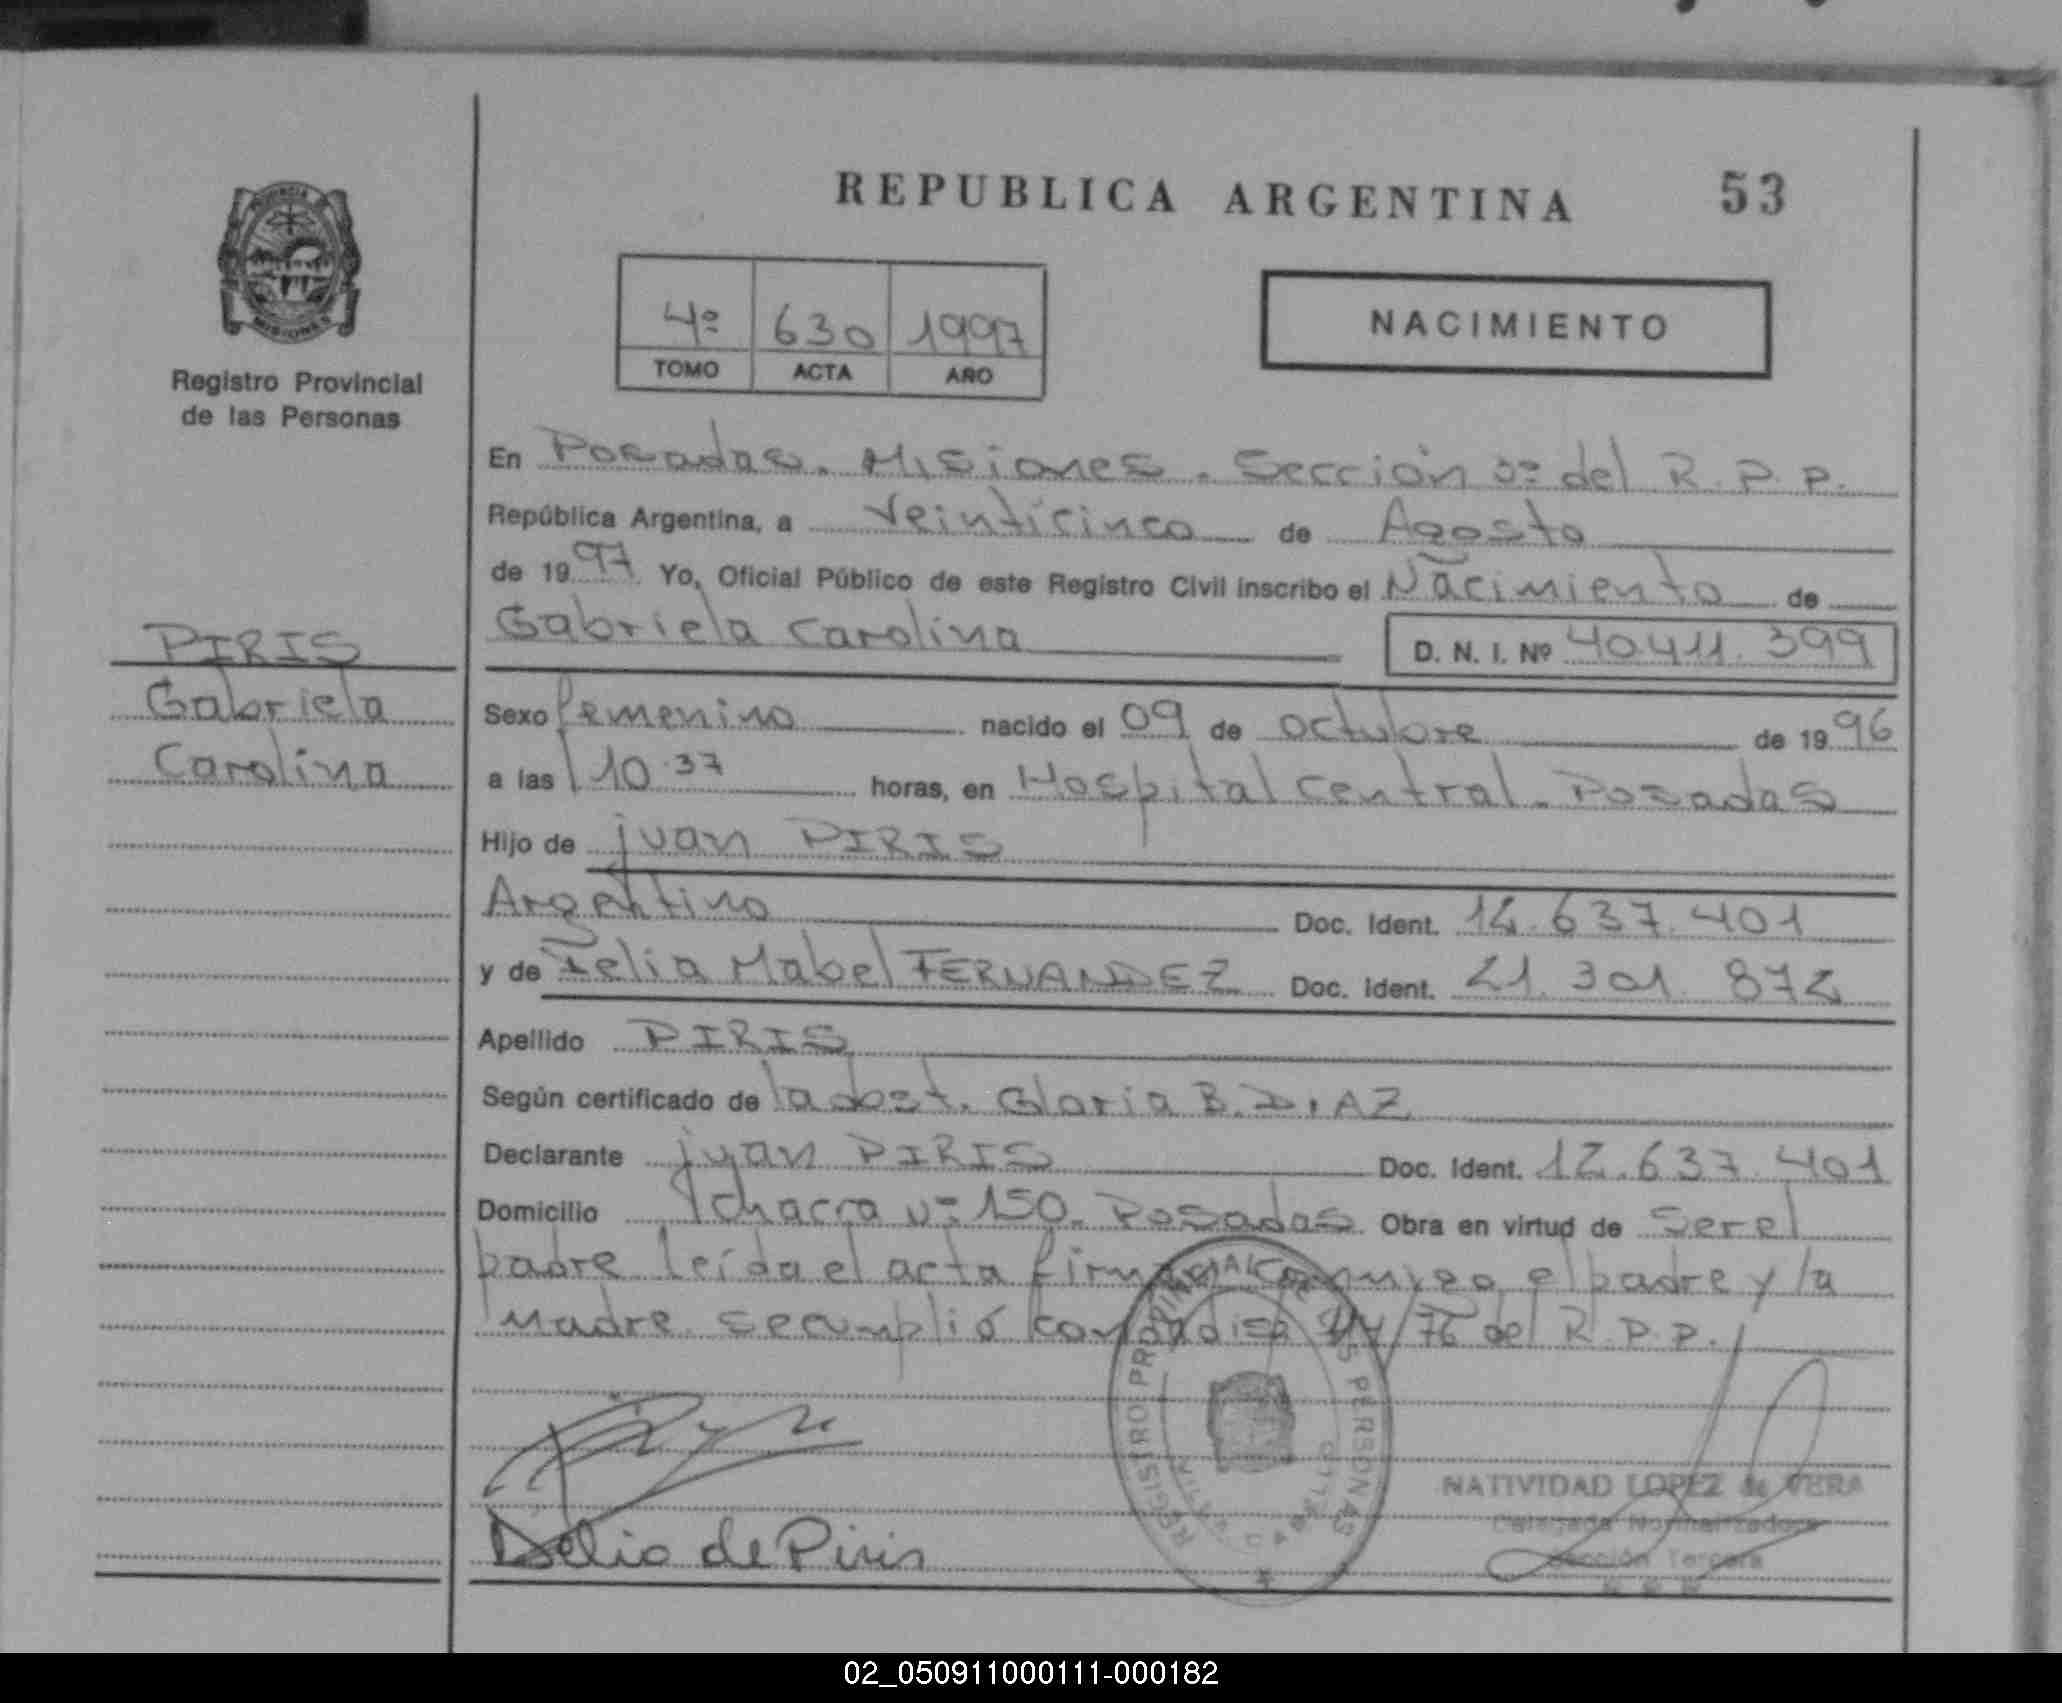 REPUBLICA ARGENTINA 53
PROVINCIA
MISIONES
Registro Provincial
de las Personas
4º 630 1997
TOMO ACTA AÑO
NACIMIENTO
En Posadas. Misiones. Sección 3º del R.P.P.
República Argentina, a veinticinco de Agosto
de 1997 Yo, Oficial Público de este Registro Civil inscribo el Nacimiento de
Gabriela Carolina D. N. I. Nº 40.411.399
PIRIS
Gabriela
Carolina
Sexo femenino nacido el 09 de octubre de 1996
a las 10.37 horas, en Hospital Central. Posadas
Hijo de juan PIRIS
Argentino Doc. Ident. 12.637.401
y de Felia Mabel FERNANDEZ Doc. Ident. 21.301.872
Apellido PIRIS
Según certificado de la obst. Gloria B. DIAZ
Declarante juan PIRIS Doc. Ident. 12.637.401
Domicilio chacra nº 150. Posadas Obra en virtud de ser el
padre leída el acta firma conmigo el padre y la
madre se cumplió con 76 del R.P.P.
REGISTRO PROVINCIAL DE LAS PERSONAS
Delia de Piris
NATIVIDAD LOPEZ de VERA
Delegada Normalizadora
Sección Tercera
02_050911000111-000182